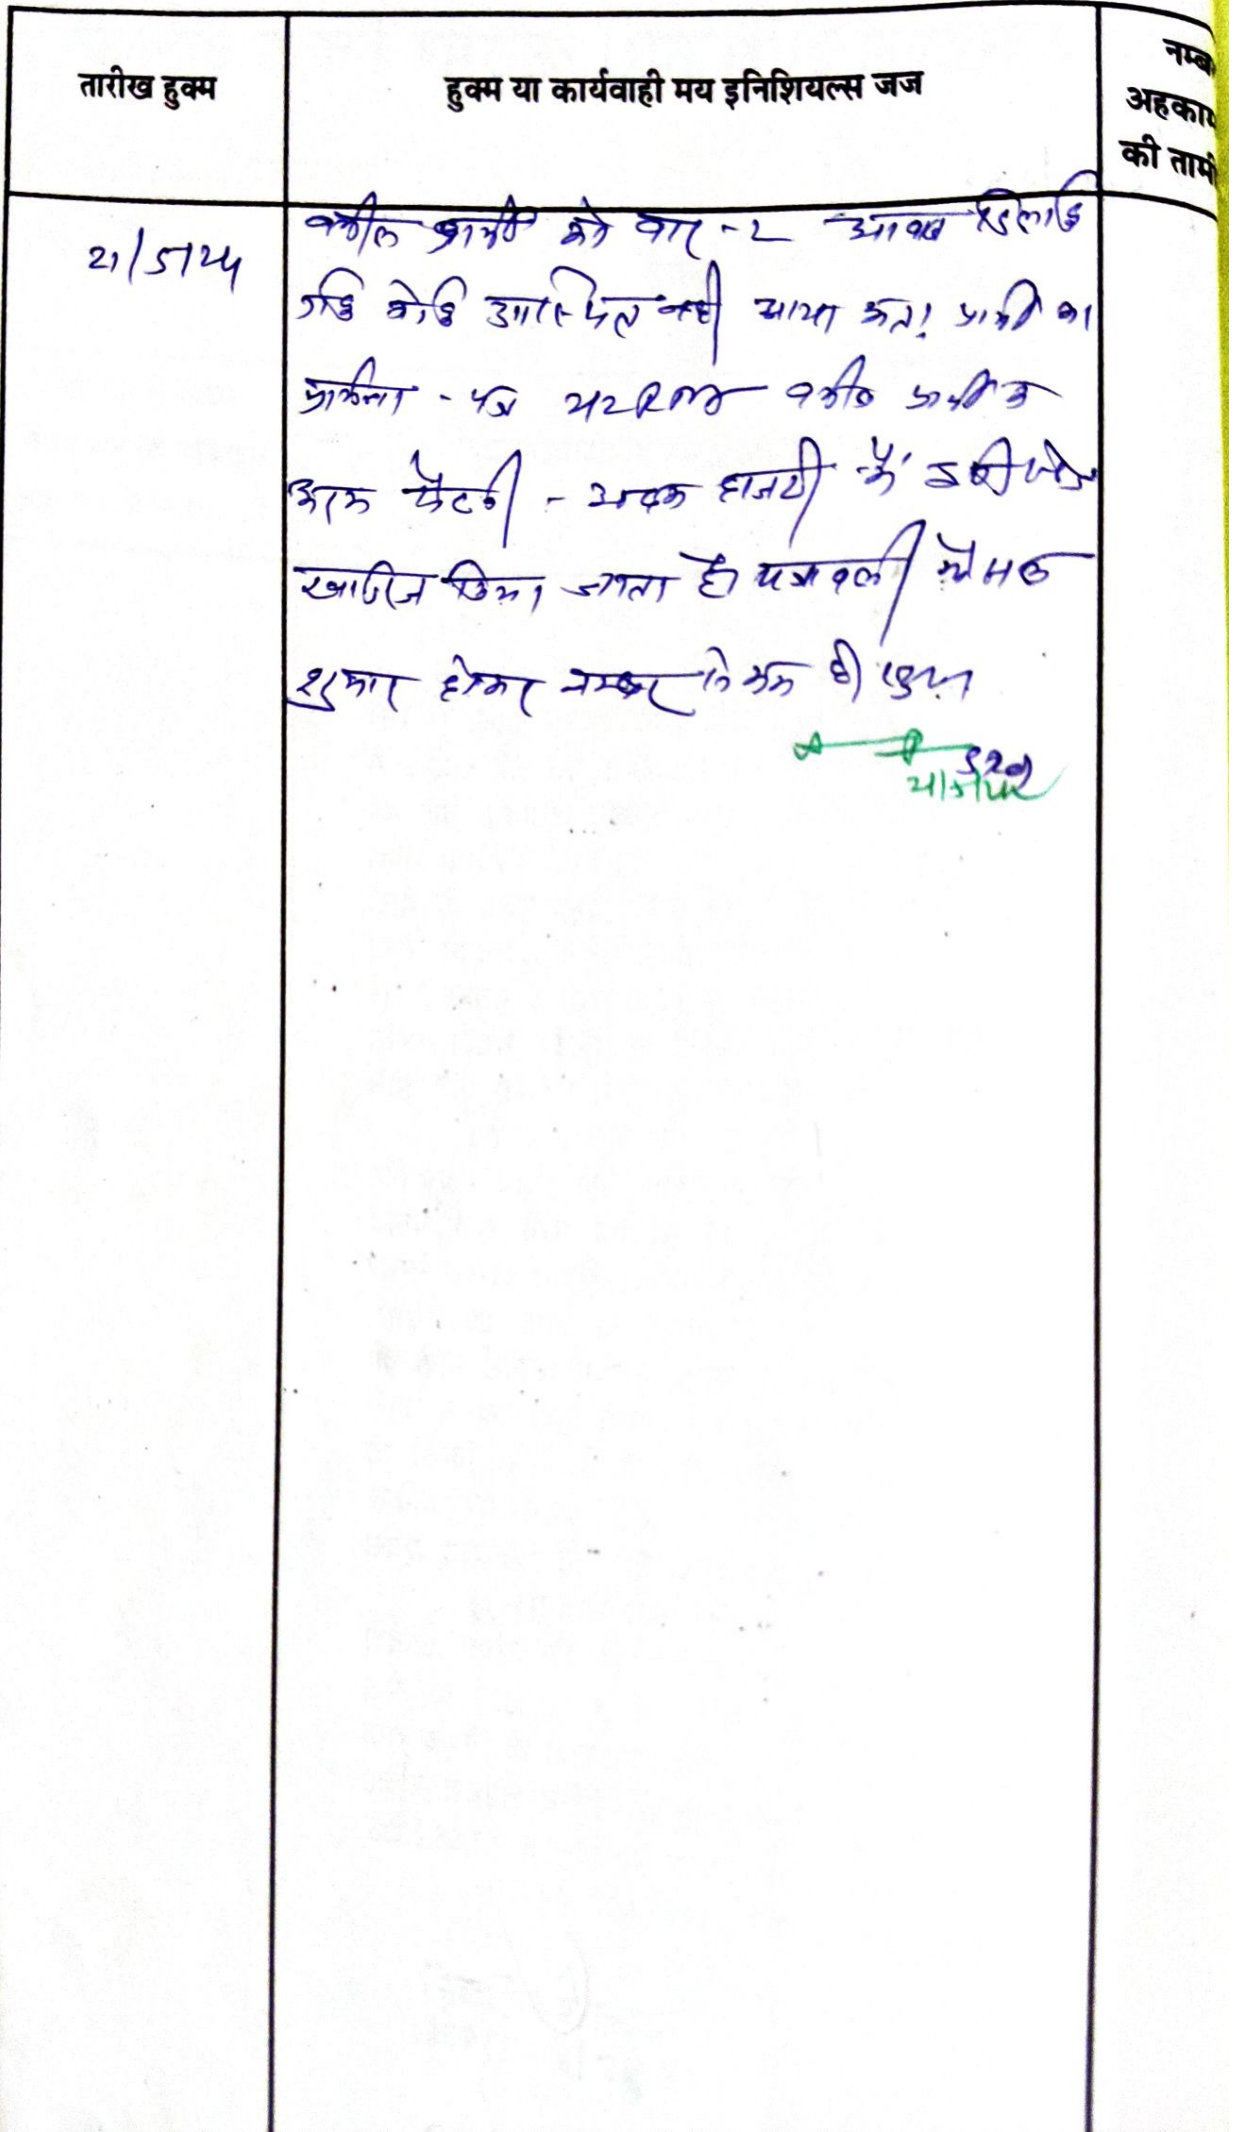 तारीख हुक्म
हुक्म या कार्यवाही मय इनिशियल्स जज
नम्ब
अहकाम
की तामी
वकील प्रार्थी को बार-2 आवाज दिलाई
गई कोई उपस्थित नहीं आया अतः प्रार्थी का
प्रार्थना-पत्र वकील प्रार्थी के
अदम पैरवी - अदम हाजरी में
खारिज किया जाता है। पत्रावली फैसल
शुमार होकर नम्बर से कम हो।